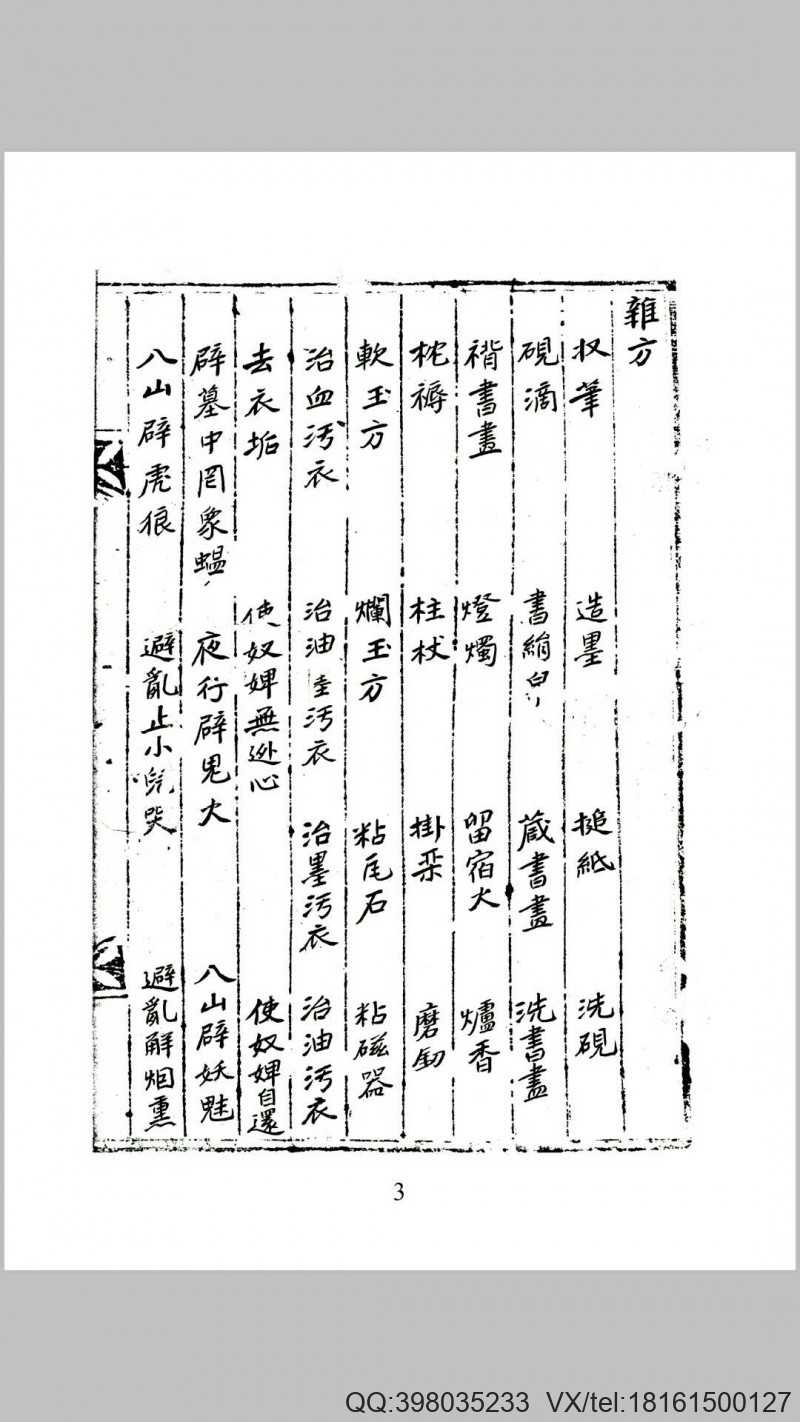 雜方
收筆 造墨 搥紙 洗硯
硯滴 書絹 蔵書畫 洗書畫
褙書畫 燈燭 留宿火 爐香
枕褥 柱杖 掛 磨
軟玉方 爛玉方 粘瓦石 粘磁器
治血汚衣 治油 汚衣 治墨汚衣 治油汚衣
去衣垢 使奴婢無逃心 使奴婢自還
辟墓中罔象 夜行辟鬼火 入山辟妖魅
入山辟虎狼 避亂止小兒哭 避亂解烟熏
3
QQ:398035233 VX/tel:18161500127